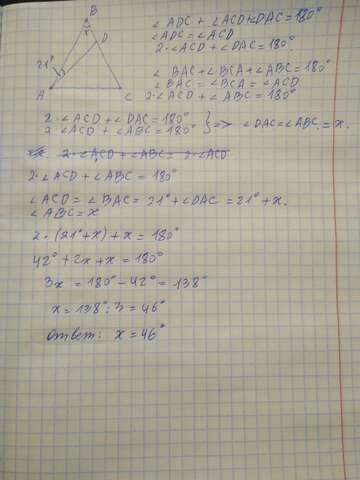 B
x
D
21°
A
C
∠ADC + ∠ACD+∠DAC=180°
∠ADC = ∠ACD
2·∠ACD + ∠DAC = 180°
∠BAC+∠BCA+∠ABC=180°
∠BAC = ∠BCA = ∠ACD
2·∠ACD + ∠ABC = 180°
2·∠ACD + ∠DAC = 180°
2·∠ACD + ∠ABC = 180° } => ∠DAC=∠ABC = x.
2·∠ACD + ∠ABC = 2·∠ACD
2·∠ACD + ∠ABC = 180°
∠ACD = ∠BAC = 21° + ∠DAC = 21° + x.
∠ABC = x
2·(21°+x)+x = 180°
42° + 2x + x = 180°
3x = 180° − 42° = 138°
x = 138° : 3 = 46°
Ответ: x = 46°